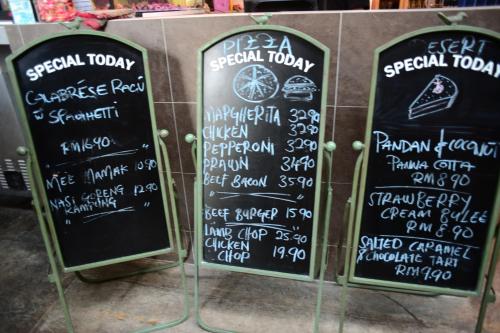 SPECIAL TODAY
CALABRÉSE RAGÚ
W SPAGHETTI
RM16.90
MEE MAMAK 10.90
NASI GORENG 12.90
KAMPUNG
PIZZA
SPECIAL TODAY
MARGHERITA 32.90
CHICKEN 32.90
PEPPERONI 32.90
PRAWN 34.90
BEEF BACON 35.90
BEEF BURGER 15.90
LAMB CHOP 25.90
CHICKEN 19.90
CHOP
DESERT
SPECIAL TODAY
PANDAN & COCONUT
PANNA COTTA
RM 8.90
STRAWBERRY
CREAM BULEE
RM 8.90
SALTED CARAMEL
& CHOCOLATE TART
RM9.90